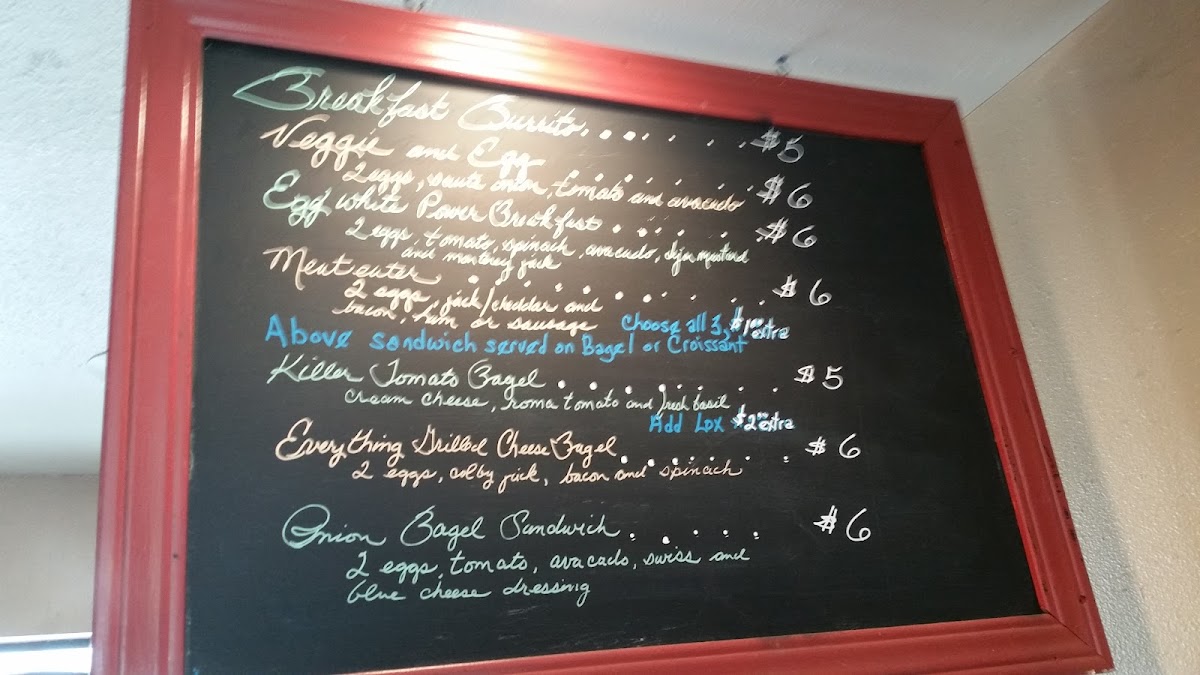 Breakfast Burrito........ $5
Veggie and Egg....... $6
2 eggs, saute onion, tomato and avacado
Egg white Power Breakfast...... $6
2 eggs, tomato, spinach, avacado, dijon mustard
and monterey jack
Meat eater.......... $6
2 eggs, jack/cheddar and
bacon, ham or sausage Choose all 3, $1.00 extra
Above sandwich served on Bagel or Croissant
Killer Tomato Bagel........ $5
cream cheese, roma tomato and fresh basil
Add Lox $2.00 extra
Everything Grilled Cheese Bagel....... $6
2 eggs, colby jack, bacon and spinach
Onion Bagel Sandwich..... $6
2 eggs, tomato, avacado, swiss and
blue cheese dressing